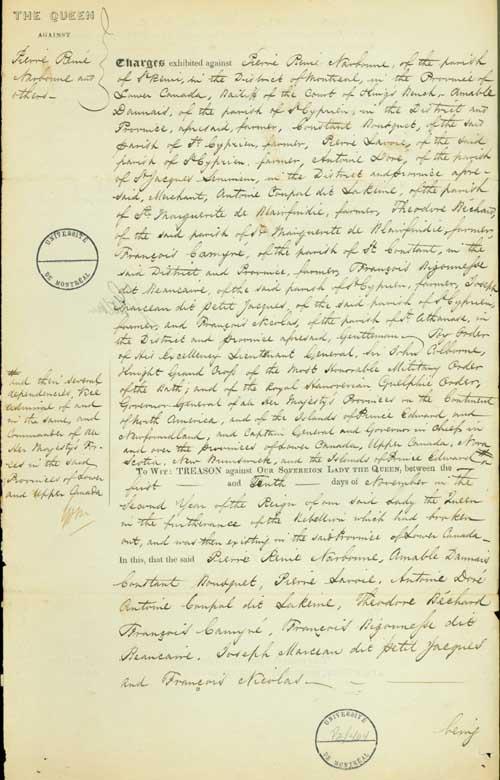 THE QUEEN
AGAINST
Pierre Réné
Narbonne and
others—
Charges exhibited against Pierre Réné Narbonne, of the parish
of St Rémi, in the District of Montreal, in the Province of
Lower Canada, Bailiff of the Court of King's Bench, Amable
Daunais, of the parish of St Cyprien, in the District and
Province, aforesaid, farmer, Constant Bousquet, of the said
Parish of St Cyprien, farmer, Pierre Lavoie, of the said
parish of St Cyprien, farmer, Antoine Doré, of the parish
of St Jacques in the District and Province afore-
said, Merchant, Antoine Coupal dit Lareine, of the parish
of Ste Marguerite de Blairfindie, farmer, Theodore Béchard
of the said parish of Ste Marguerite de Blairfindie, farmer,
François Camyré, of the parish of St Constant, in the
said District and Province, farmer, François Bigonnesse
dit Beaucaire, of the said parish of St Cyprien, farmer, Joseph
Marceau dit Petit Jacques, of the said parish of St Cyprien,
farmer, and François Nicolas, of the parish of St Athanase, in
the District and Province aforesaid, Gentleman — By Order
of His Excellency Lieutenant General, Sir John Colborne,
Knight Grand Cross of the Most Honorable Military Order
of the Bath; and of the Royal Hanoverian Guelphic Order,
Governor General of all Her Majesty's Provinces on the Continent
of North America, and of the Islands of Prince Edward and
Newfoundland, and Captain General and Governor in Chief in
and over the Provinces of Lower Canada, Upper Canada, Nova
Scotia, New Brunswick, and the Islands of Prince Edward
and their several
dependencies, Vice
Admiral of and
in the same, and
Commander of all
Her Majesty's For-
ces in the said
Provinces of Lower
and Upper Canada
To Wit: TREASON against Our Sovereign Lady the Queen, between the
first — and Tenth — days of November in the
Second Year of the Reign of our said Lady the Queen
in the furtherance of the Rebellion which had broken
out, and was then existing in the said Province of Lower Canada—
In this, that the said Pierre Réné Narbonne, Amable Daunais
Constant Bousquet, Pierre Lavoie, Antoine Doré
Antoine Coupal dit Lareine, Théodore Béchard
François Camyré, François Bigonnesse dit
Beaucaire, Joseph Marceau dit Petit Jacques
and François Nicolas —
being
UNIVERSITÉ
DE MONTRÉAL
UNIVERSITÉ
DE MONTRÉAL